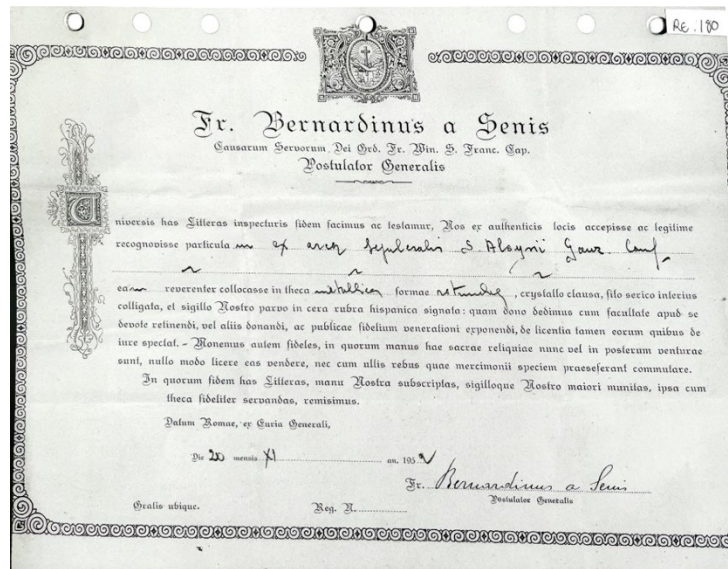 RE. 180
Fr. Bernardinus a Senis
Causarum Servorum Dei Ord. Fr. Min. S. Franc. Cap.
Postulator Generalis
Universis has Litteras inspecturis fidem facimus ac testamur, Nos ex authenticis locis accepisse ac legitime
recognovisse particulam ex arca sepulcrali S. Aloysii Gonz. Conf.
eam reverenter collocasse in theca metallica formae rotundae, crystallo clausa, filo serico interius
colligata, et sigillo Nostro parvo in cera rubra hispanica signata: quam dono dedimus cum facultate apud se
devote retinendi, vel aliis donandi, ac publicae fidelium venerationi exponendi, de licentia tamen eorum quibus de
iure spectat. - Monemus autem fideles, in quorum manus hae sacrae reliquiae nunc vel in posterum venturae
sunt, nullo modo licere eas vendere, nec cum ullis rebus quae mercimonii speciem praeseferant commutare.
In quorum fidem has Litteras, manu Nostra subscriptas, sigilloque Nostro maiori munitas, ipsa cum
theca fideliter servandas, remisimus.
Datum Romae, ex Curia Generali,
Die 20 mensis XI an. 195
Fr. Bernardinus a Senis
Postulator Generalis
Gratis ubique. Reg. N.